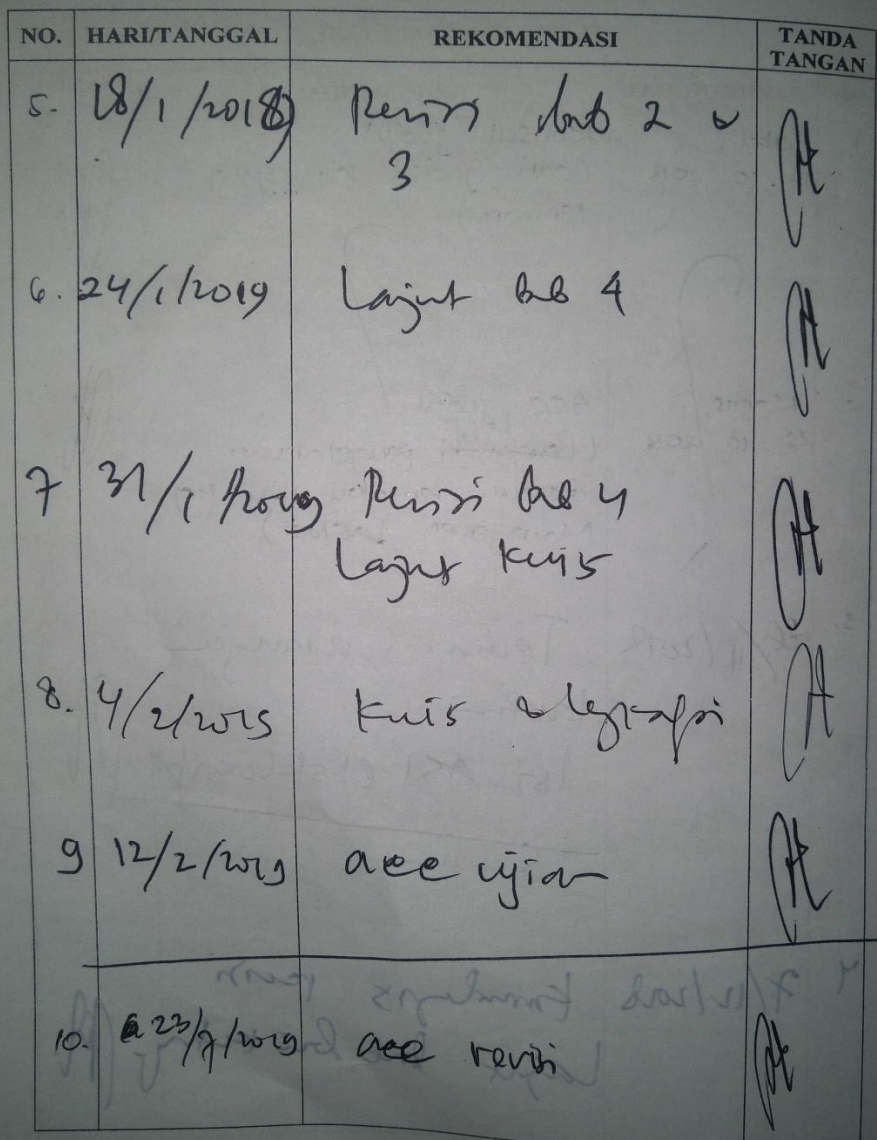 NO. HARI/TANGGAL REKOMENDASI TANDA TANGAN
5. 18/1/2018 Revisi bab 2 &
3
6. 24/1/2019 Lanjut bab 4
7 31/1/2019 Revisi bab 4
Lanjut Kuis
8. 4/2/2019 Kuis dilengkapi
9 12/2/2019 acc ujian
10. 23/7/2019 acc revisi